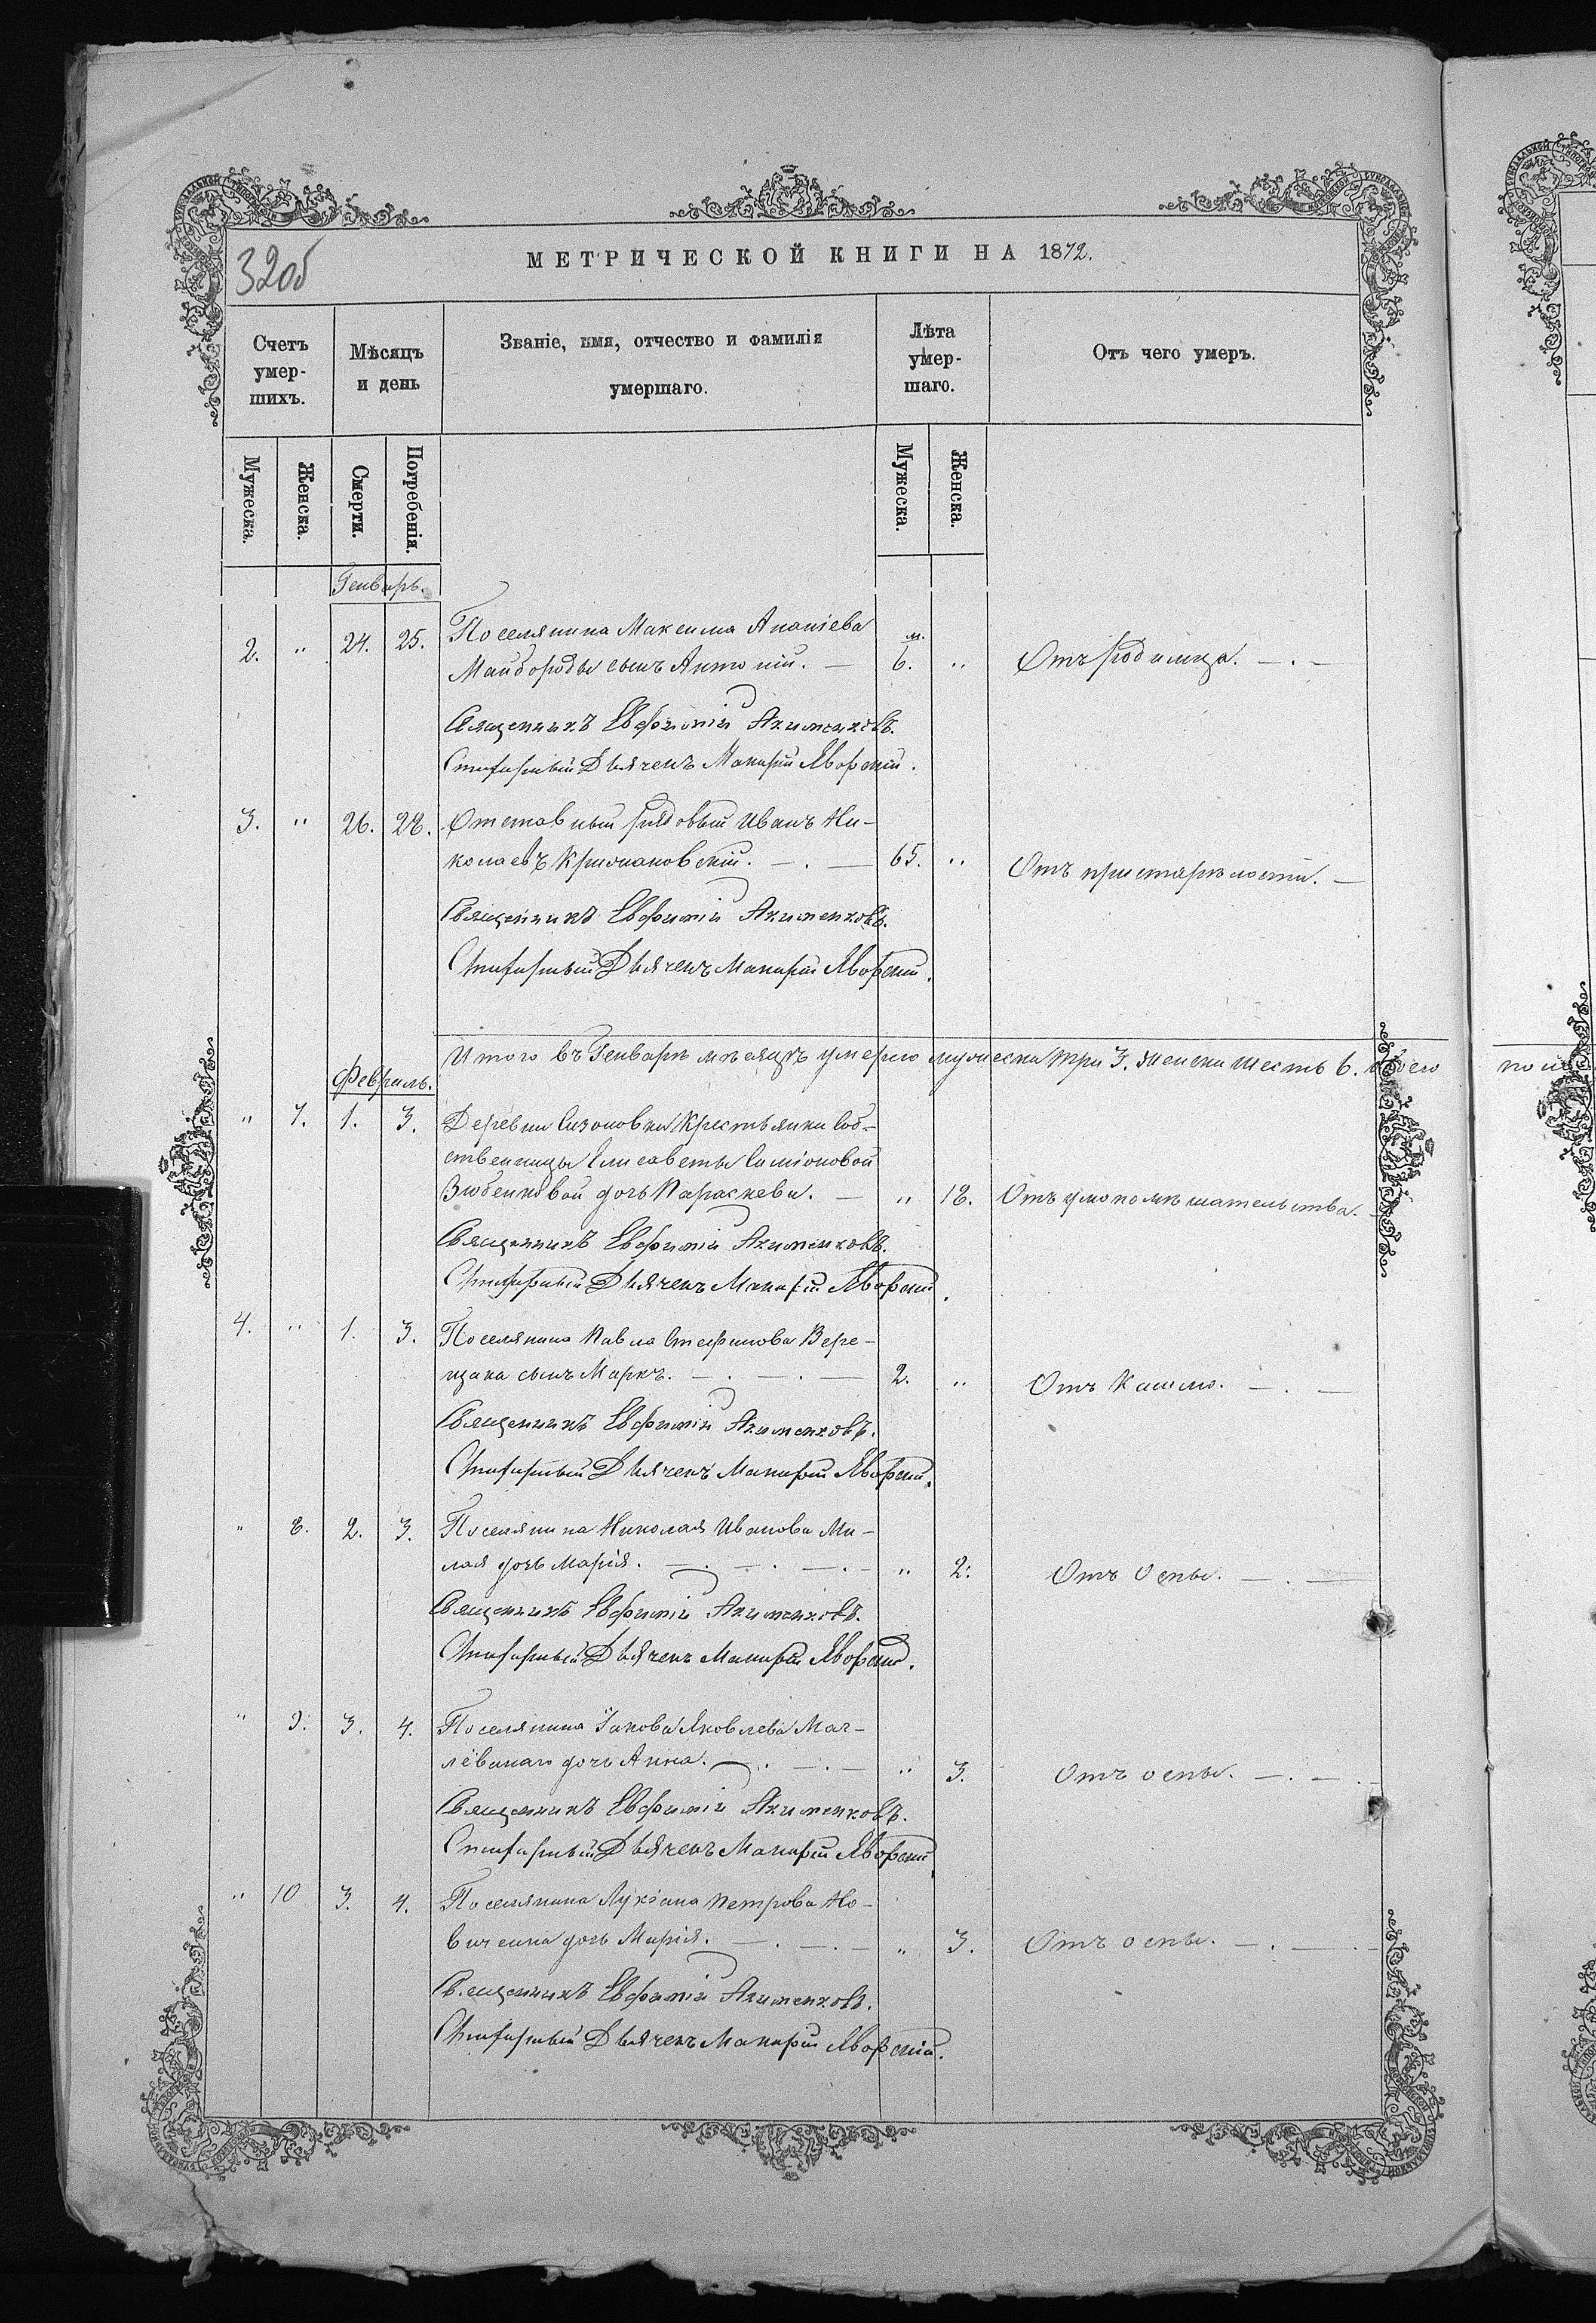 32об
МЕТРИЧЕСКОЙ КНИГИ НА 1872.
Счетъ умер-шихъ.
Мѣсяцъ и день
Званіе, имя, отчество и фамилія умершаго.
Лѣта умер-шаго.
Отъ чего умеръ.
Мужеска.
Женска.
Смерти.
Погребенія.
Мужеска.
Женска.
Генварь.
2. " 24. 25. Поселянина Максима Ананіева
Майбороды сынъ Антоній. — м. 6. " Отъ родимца. —.—
Священникъ Евфимій Акименковъ.
Стихарный Дьячекъ Макарій Яворскій.
3. " 26. 28. Отставный рядовый Иванъ Ни-
колаевъ Крыжановскій. —.— 65. " Отъ престарѣлости. —
Священникъ Евфимій Акименковъ.
Стихарный Дьячекъ Макарій Яворскій.
Итого въ Генварѣ мѣсяцѣ умерло мужеска три 3. женска шесть 6. обоего по
Февраль.
" 7. 1. 3. Деревни Сизоновки Крестьянки соб-
ственницы Елисаветы Симіоновой
Зюбенковой дочь Параскева. — " 18. Отъ умопомѣшательства.
Священникъ Евфимій Акименковъ.
Стихарный Дьячекъ Макарій Яворскій.
4. " 1. 3. Поселянина Павла Стефанова Вере-
щака сынъ Маркъ. —.—.— 2. " Отъ Кашлю. —.—
Священникъ Евфимій Акименковъ.
Стихарный Дьячекъ Макарій Яворскій.
" 8. 2. 3. Поселянина Николая Иванова Ми-
лая дочь Марія. —.—.—.— " 2. Отъ Оспы. —.—
Священникъ Евфимій Акименковъ.
Стихарный Дьячекъ Макарій Яворскій.
" 9. 3. 4. Поселянина Іакова Яковлева
дочь Анна. —.—.— " 3. Отъ оспы. —.—.—
Священникъ Евфимій Акименковъ.
Стихарный Дьячекъ Макарій Яворскій
" 10 3. 4. Поселянина Лукіана Петрова Но-
виченка дочь Марія. —.—.— " 3. Отъ оспы. —.—.—
Священникъ Евфимій Акименковъ.
Стихарный Дьячекъ Макарій Яворскій.